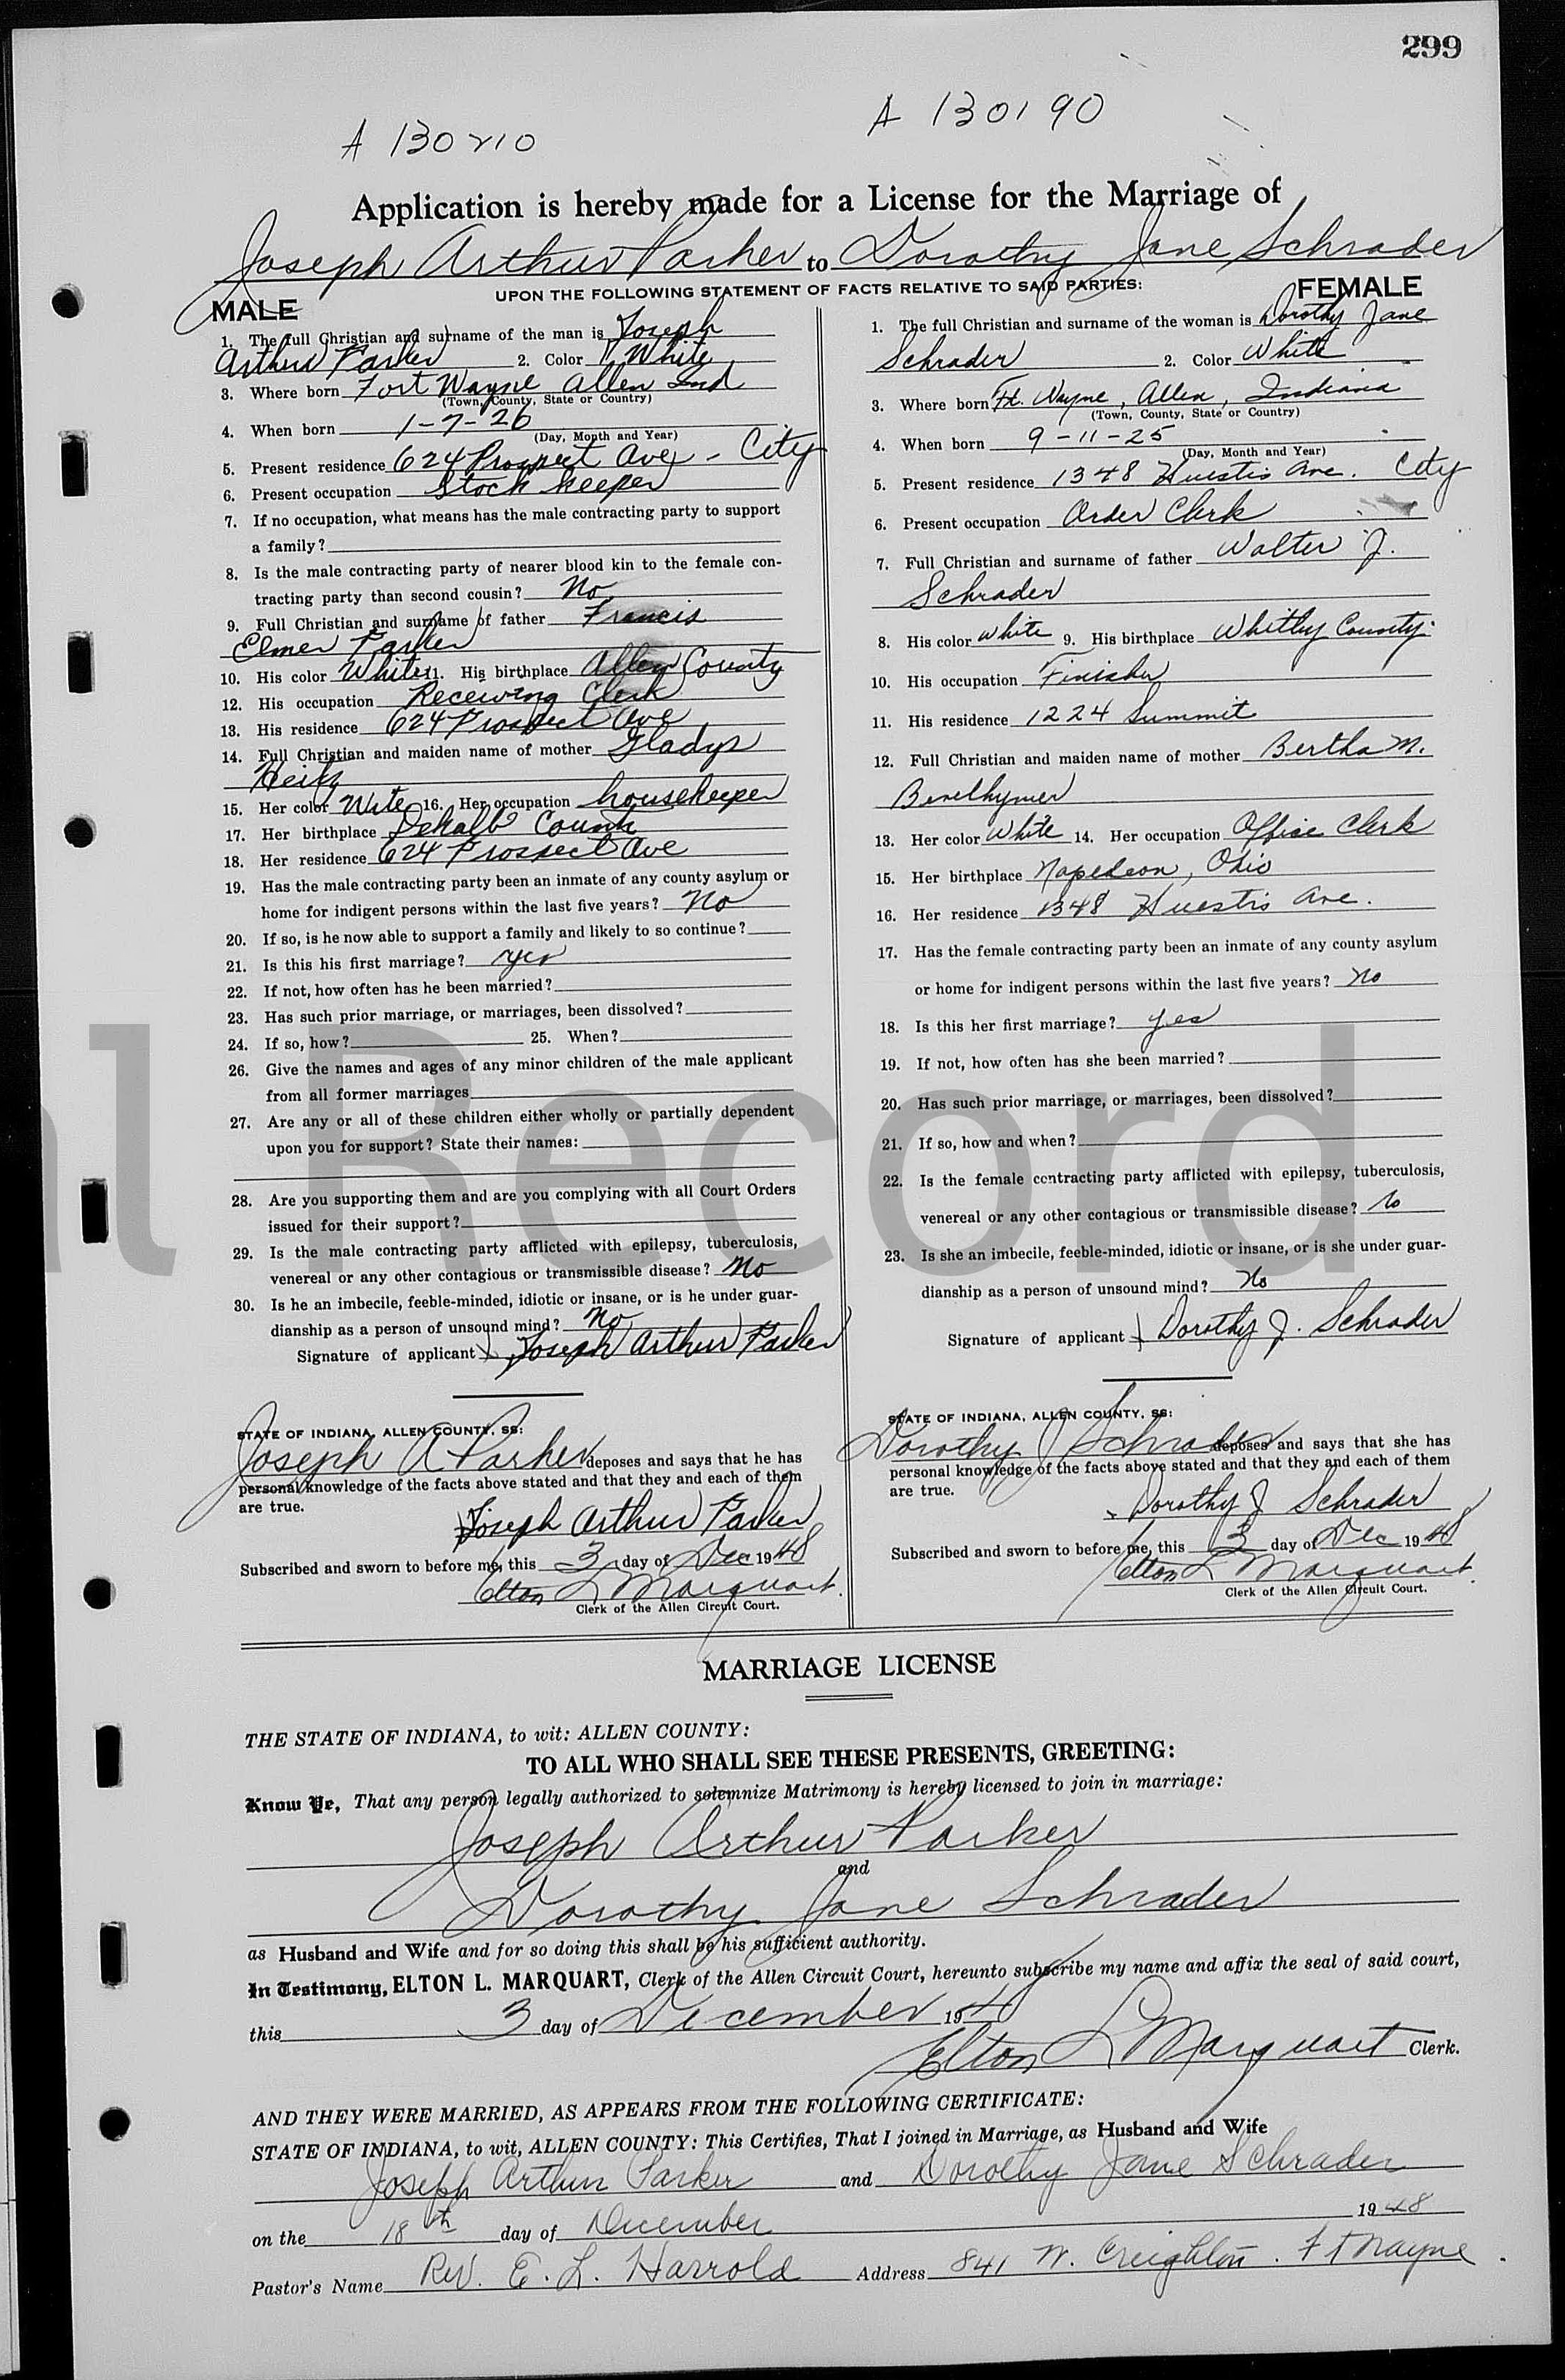 299
A 130210
A 130190
Application is hereby made for a License for the Marriage of
Joseph Arthur Parker to Dorothy Jane Schrader
UPON THE FOLLOWING STATEMENT OF FACTS RELATIVE TO SAID PARTIES:
MALE
1. The full Christian and surname of the man is Joseph
Arthur Parker 2. Color White
3. Where born Fort Wayne Allen Ind
(Town, County, State or Country)
4. When born 1-7-26
(Day, Month and Year)
5. Present residence 624 Prospect Ave - City
6. Present occupation Stock keeper
7. If no occupation, what means has the male contracting party to support
a family?
8. Is the male contracting party of nearer blood kin to the female con-
tracting party than second cousin? No
9. Full Christian and surname of father Francis
Elmer Parker
10. His color White 11. His birthplace Allen County
12. His occupation Receiving Clerk
13. His residence 624 Prospect Ave
14. Full Christian and maiden name of mother Gladys
15. Her color Wite 16. Her occupation housekeeper
17. Her birthplace Dekalb County
18. Her residence 624 Prospect Ave
19. Has the male contracting party been an inmate of any county asylum or
home for indigent persons within the last five years? No
20. If so, is he now able to support a family and likely to so continue?
21. Is this his first marriage? yes
22. If not, how often has he been married?
23. Has such prior marriage, or marriages, been dissolved?
24. If so, how? 25. When?
26. Give the names and ages of any minor children of the male applicant
from all former marriages
27. Are any or all of these children either wholly or partially dependent
upon you for support? State their names:
28. Are you supporting them and are you complying with all Court Orders
issued for their support?
29. Is the male contracting party afflicted with epilepsy, tuberculosis,
venereal or any other contagious or transmissible disease? No
30. Is he an imbecile, feeble-minded, idiotic or insane, or is he under guar-
dianship as a person of unsound mind? No
Signature of applicant Joseph Arthur Parker
STATE OF INDIANA, ALLEN COUNTY, SS:
Joseph A Parker deposes and says that he has
personal knowledge of the facts above stated and that they and each of them
are true.
Joseph Arthur Parker
Subscribed and sworn to before me, this 3 day of Dec 1948
Elton L Marquart
Clerk of the Allen Circuit Court.
FEMALE
1. The full Christian and surname of the woman is Dorothy Jane
Schrader 2. Color White
3. Where born Ft. Wayne, Allen, Indiana
(Town, County, State or Country)
4. When born 9-11-25
(Day, Month and Year)
5. Present residence 1348 Huestis Ave. City
6. Present occupation Order Clerk
7. Full Christian and surname of father Walter J.
Schrader
8. His color White 9. His birthplace Whitley County
10. His occupation Finisher
11. His residence 1224 Summit
12. Full Christian and maiden name of mother Bertha M.
13. Her color White 14. Her occupation Office Clerk
15. Her birthplace Napoleon, Ohio
16. Her residence 1348 Huestis Ave.
17. Has the female contracting party been an inmate of any county asylum
or home for indigent persons within the last five years? No
18. Is this her first marriage? yes
19. If not, how often has she been married?
20. Has such prior marriage, or marriages, been dissolved?
21. If so, how and when?
22. Is the female contracting party afflicted with epilepsy, tuberculosis,
venereal or any other contagious or transmissible disease? No
23. Is she an imbecile, feeble-minded, idiotic or insane, or is she under guar-
dianship as a person of unsound mind? No
Signature of applicant Dorothy J. Schrader
STATE OF INDIANA, ALLEN COUNTY, SS:
Dorothy J Schrader deposes and says that she has
personal knowledge of the facts above stated and that they and each of them
are true.
Dorothy J Schrader
Subscribed and sworn to before me, this 3 day of Dec 1948
Elton L Marquart
Clerk of the Allen Circuit Court.
l Record
MARRIAGE LICENSE
THE STATE OF INDIANA, to wit: ALLEN COUNTY:
TO ALL WHO SHALL SEE THESE PRESENTS, GREETING:
Know Ye, That any person legally authorized to solemnize Matrimony is hereby licensed to join in marriage:
Joseph Arthur Parker
and
Dorothy Jane Schrader
as Husband and Wife and for so doing this shall be his sufficient authority.
In Testimony, ELTON L. MARQUART, Clerk of the Allen Circuit Court, hereunto subscribe my name and affix the seal of said court,
this 3 day of December 1948
Elton L Marquart Clerk.
AND THEY WERE MARRIED, AS APPEARS FROM THE FOLLOWING CERTIFICATE:
STATE OF INDIANA, to wit, ALLEN COUNTY: This Certifies, That I joined in Marriage, as Husband and Wife
Joseph Arthur Parker and Dorothy Jane Schrader
on the 18th day of December 1948
Pastor's Name Rev. E. L. Harrold Address 841 W. Creighton. Ft Wayne.